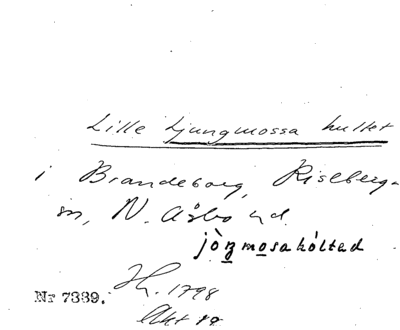 Lille Ljungmossa hultet
i Brandeborg, Riseberga
sn, N. Åsbo hd.
jòṉmo̱sahòlted
Nr 7339. Jh. 1798
Akt 12